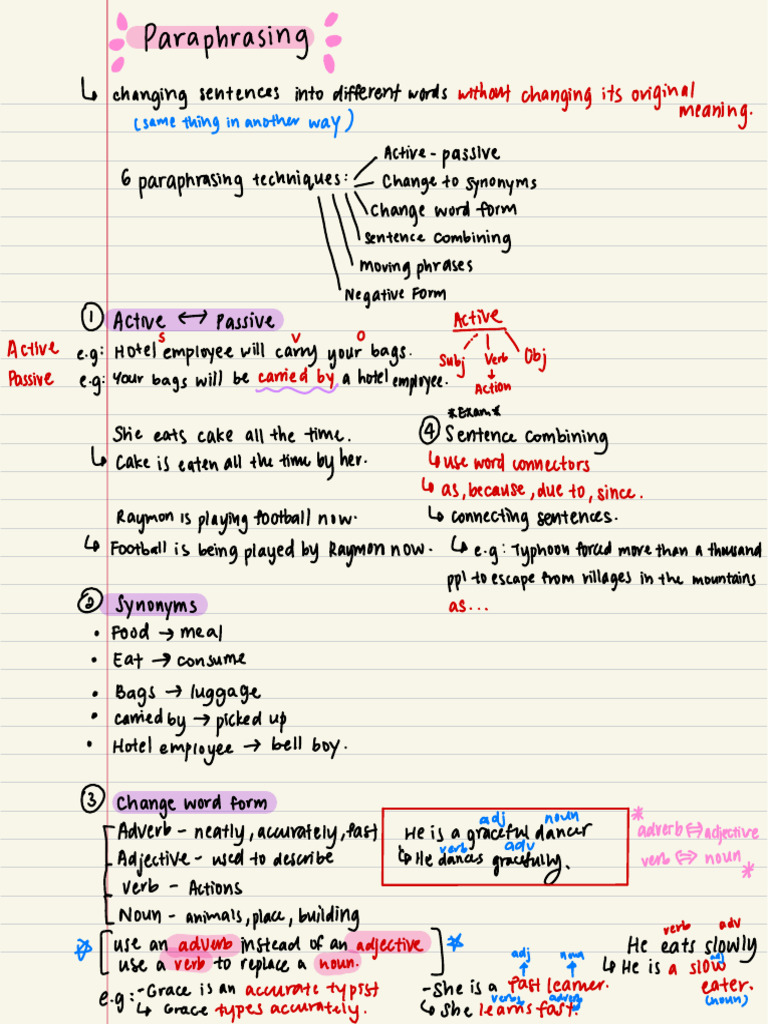 Paraphrasing
↳ changing sentences into different words without changing its original
meaning.
(same thing in another way)
6 paraphrasing techniques:
Active - passive
Change to synonyms
Change word form
sentence combining
moving phrases
Negative Form
① Active ↔ Passive
S V O
Active e.g: Hotel employee will carry your bags.
Passive e.g: Your bags will be carried by a hotel employee.
Active
Subj Verb Obj
Action
She eats cake all the time.
↳ Cake is eaten all the time by her.
Raymon is playing football now.
↳ Football is being played by Raymon now.
*Exam*
④ Sentence combining
↳ use word connectors
↳ as, because, due to, since.
↳ connecting sentences.
↳ e.g: Typhoon forced more than a thousand
ppl to escape from villages in the mountains
as...
② Synonyms
• Food → meal
• Eat → consume
• Bags → luggage
• carried by → picked up
• Hotel employee → bell boy.
③ Change word form
Adverb - neatly, accurately, fast
Adjective - used to describe
Verb - Actions
Noun - animals, place, building
adj noun
He is a graceful dancer
verb adv
↳ He dances gracefully.
* adverb ⇔ adjective
verb ⇔ noun *
* use an adverb instead of an adjective *
use a verb to replace a noun.
e.g: - Grace is an accurate typist
↳ Grace types accurately.
adj noun
- She is a fast learner.
verb adverb
↳ She learns fast.
verb adv
He eats slowly
↳ He is a slow
adj
eater.
(noun)